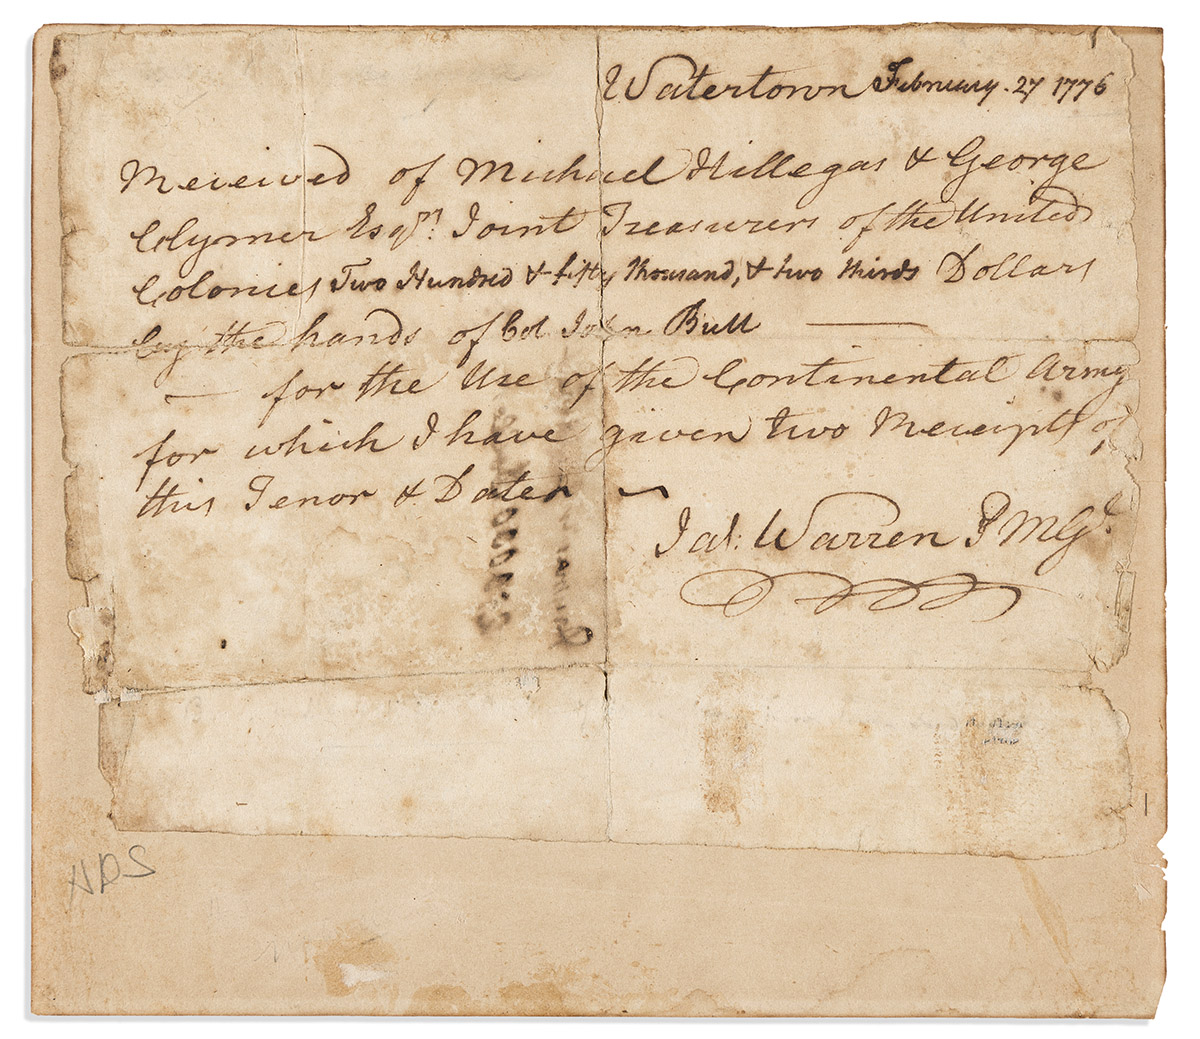 Watertown February. 27 1776
Received of Michael Hillegas & George
Clymer Esqrs. Joint Treasurers of the United
Colonies Two Hundred & fifty thousand, & two thirds Dollars
by the hands of Col John Bull
— for the Use of the Continental Army
for which I have given two Receipts of
this Tenor & Date
Jas. Warren P M Gl.
ADS